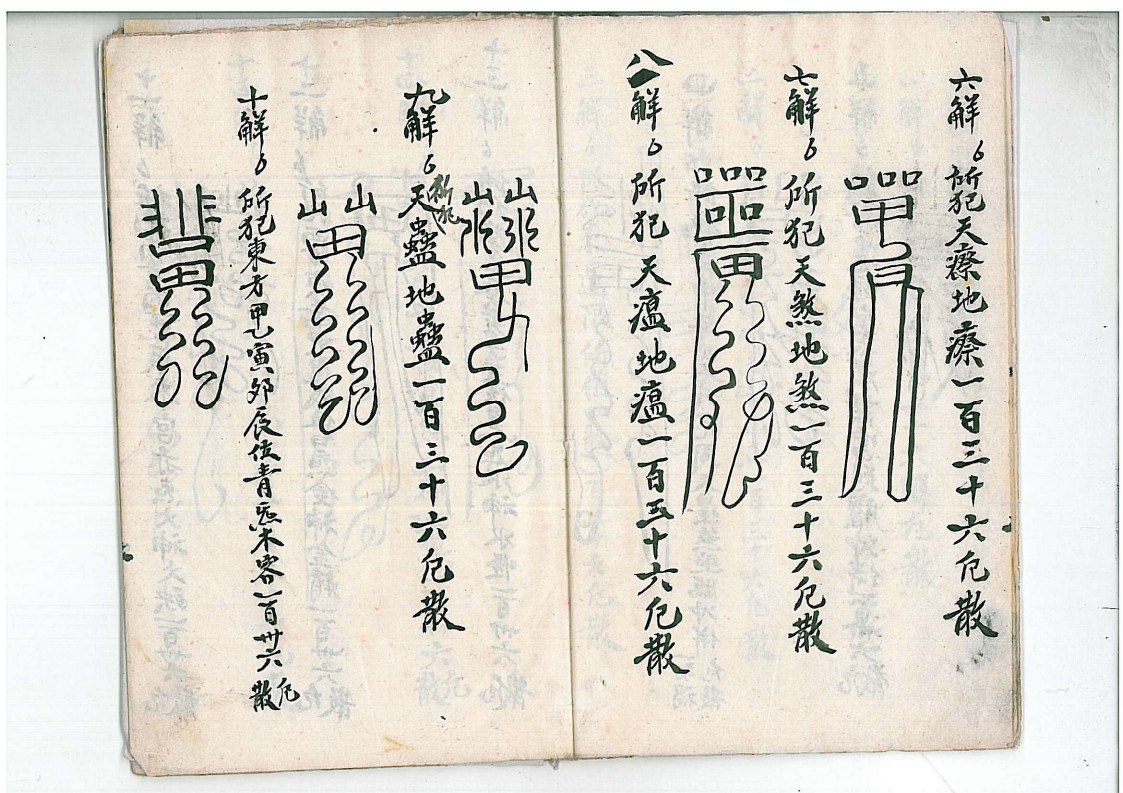 六解 所犯天瘵地瘵一百三十六厄散
七解 所犯天煞地煞一百三十六厄散
八解 所犯天瘟地瘟一百三十六厄散
九解 所犯天蠱地蠱一百三十六厄散
十解 所犯東方甲乙寅卯辰位青 木 一百卅六厄散